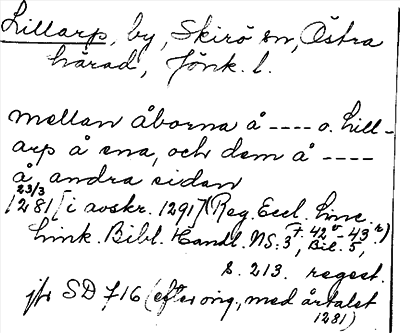 Lillarp, by, Skirö sn, Östra
härad, Jönk. l.
mellan åborna å ---- o. Lill-
arp å ena, och dem å ----
å andra sidan
23/3
1281 [i avskr. 1291] (Reg. Eccl. Linc. f. 42v-43r)
Link. Bibl. Handl. NS: 3, Bil. 5,
s. 213. regest.
jfr SD 716 (efter orig, med årtalet
1281)